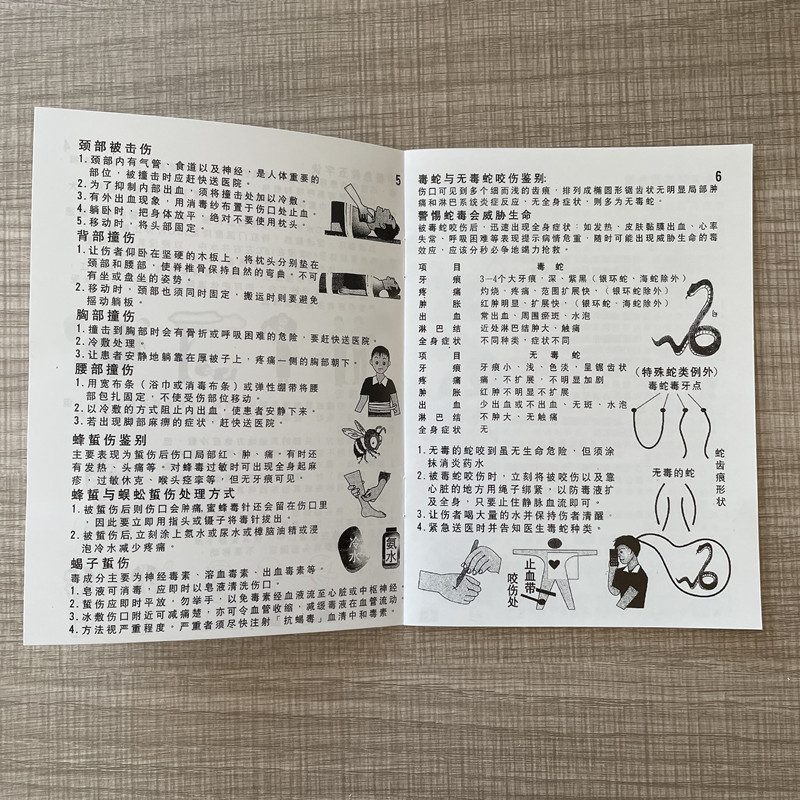 5
颈部被击伤
1.颈部内有气管、食道以及神经，是人体重要的
部位，被撞击时应赶快送医院。
2.为了抑制内部出血，须将撞击处加以冷敷。
3.有外出血现象，用消毒纱布置于伤口处止血。
4.躺卧时，把身体放平，绝对不要使用枕头。
5.移动时，将头部固定。
背部撞伤
1.让伤者仰卧在坚硬的木板上，将枕头分别垫在
颈部和腰部，使脊椎骨保持自然的弯曲。不可
有坐或盘坐的姿势。
2.移动时，颈部也须同时固定，搬运时则要避免
摇动躺板。
胸部撞伤
1.撞击到胸部时会有骨折或呼吸困难的危险，要赶快送医院。
2.冷敷处理。
3.让患者安静地躺靠在厚被子上，疼痛一侧的胸部朝下。
腰部撞伤
1.用宽布条（浴巾或消毒布条）或弹性绷带将腰
部包扎固定，不使受伤部位移动。
2.以冷敷的方式阻止内出血，使患者安静下来。
3.若出现脚部麻痹的症状，赶快送医院。
蜂蜇伤鉴别
主要表现为蜇伤后伤口局部红、肿、痛。有时还
有发热、头痛等。对蜂毒过敏时可出现全身起麻
疹，过敏休克、喉头痉挛等，但无牙痕可见。
蜂蜇与蜈蚣蜇伤处理方式
1.被蜇伤后则伤口会肿痛,蜜蜂毒针还会留在伤口里
，因此要立即用指头或镊子将毒针拔出。
2.被蜇伤后,立刻涂上氨水或尿水或樟脑油精或浸
泡冷水减少疼痛。
冷水
氨水
蝎子蜇伤
毒成分主要为神经毒素、溶血毒素、出血毒素等。
1.皂液可消毒，应即时以皂液清洗伤口。
2.蜇伤应即时平放，勿举手，以免毒素经血液流至心脏或中枢神经。
3.冰敷伤口附近可减痛楚，亦可令血管收缩，减缓毒液在血管流动。
4.方法视严重程度。严重者须尽快注射「抗蝎毒」血清中和毒素。
6
毒蛇与无毒蛇咬伤鉴别:
伤口可见到多个细而浅的齿痕，排列成椭圆形锯齿状无明显局部肿
痛和淋巴系统炎症反应，无全身症状，则多为无毒蛇。
警惕蛇毒会威胁生命
被毒蛇咬伤后，迅速出现全身症状：如发热、皮肤黏膜出血、心率
失常、呼吸困难等表现提示病情危重，随时可能出现威胁生命的毒
效应，应该分秒必争地竭力抢救。
项 目 毒 蛇
牙 痕 3—4个大牙痕，深，紫黑（银环蛇、海蛇除外）
疼 痛 灼烧、疼痛、范围扩展快，（银环蛇除外）
肿 胀 红肿明显，扩展快，（银环蛇、海蛇除外）
出 血 常出血，周围瘀斑、水泡
淋 巴 结 近处淋巴结肿大、触痛
全身症状 不同种类，症状不同
项 目 无 毒 蛇
牙 痕 牙痕小，浅，色淡，呈锯齿状
疼 痛 痛，不扩展，不明显加剧
肿 胀 红肿不明显不扩展
出 血 少出血或不出血，无斑、水泡
淋 巴 结 不肿大，无触痛
全身症状 无
（特殊蛇类例外）
毒蛇毒牙点
无毒的蛇
蛇齿痕形状
1.无毒的蛇咬到虽无生命危险，但须涂
抹消炎药水
2.被毒蛇咬伤时，立刻将被咬伤以及靠
心脏的地方用绳子绑紧，以防毒液扩
及全身，只要止住静脉血流即可。
3.让伤者喝大量的水并保持伤者清醒。
4.紧急送医时并告知医生毒蛇种类。
止血带
咬伤处